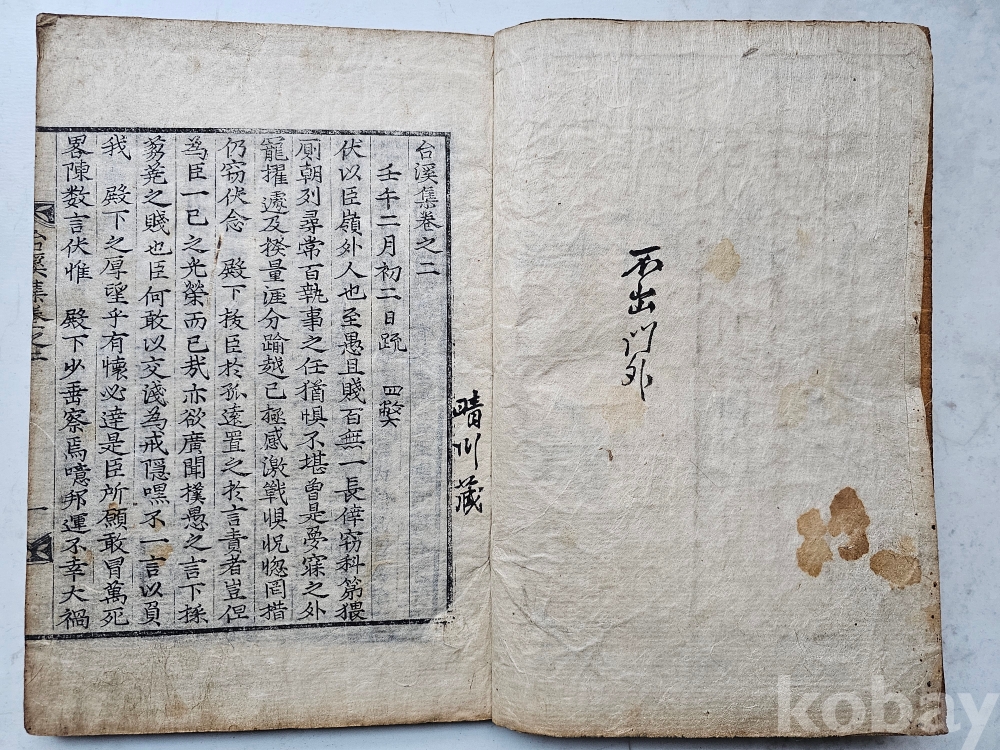 不出門外
晴川藏
台溪集卷之二
壬午二月初二日疏 四弊
伏以臣嶺外人也至愚且賤百無一長倖竊科第猥
廁朝列尋常百執事之任猶惧不堪曾是夢寐之外
寵擢遽及揆量涯分踰越已極感激戰惧怳惚罔措
仍竊伏念 殿下拔臣於孤遠置之於言責者豈但
爲臣一己之光榮而已㢤亦欲廣聞樸愚之言下採
蒭蕘之賤也臣何敢以交淺為戒隠嘿不一言以負
我 殿下之厚望乎有懐必達是臣所願敢冒萬死
畧陳数言伏惟 殿下少垂察焉噫邦運不幸大禍
台溪集卷之二
一
kobay